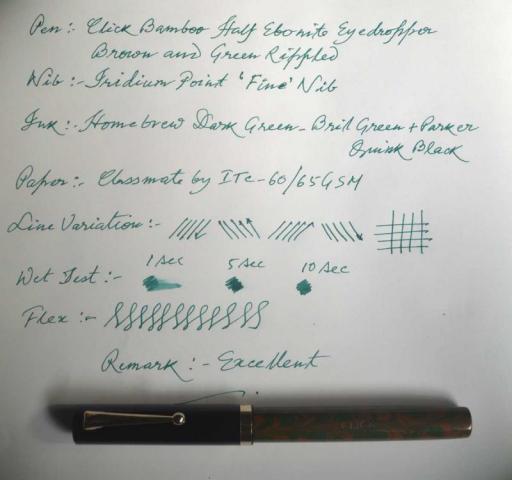 Pen:- Click Bamboo Half Ebonite Eyedropper
Brown and Green Rippled
Nib:- Iridium Point 'Fine' Nib
Ink:- Homebrew Dark Green - Bril Green + Parker
Quink Black
Paper:- Classmate by ITC-60/65GSM
Line Variation:-
1 Sec 5 Sec 10 Sec
Wet Test:-
Flex:-
Remark:- Excellent
CLICK